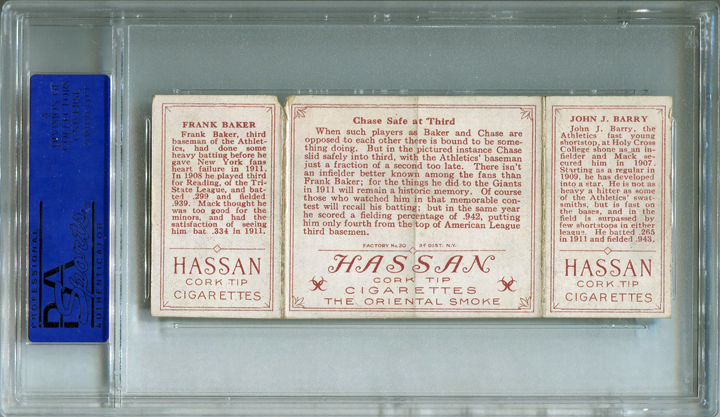 FRANK BAKER
Frank Baker, third
baseman of the Athlet-
ics, had done some
heavy batting before he
gave New York fans
heart failure in 1911.
In 1908 he played third
for Reading, of the Tri-
State League, and bat-
ted .299 and fielded
.939. Mack thought he
was too good for the
minors, and had the
satisfaction of seeing
him bat .334 in 1911.
HASSAN
CORK TIP
CIGARETTES
Chase Safe at Third
When such players as Baker and Chase are
opposed to each other there is bound to be some-
thing doing. But in the pictured instance Chase
slid safely into third, with the Athletics' baseman
just a fraction of a second too late. There isn't
an infielder better known among the fans than
Frank Baker; for the things he did to the Giants
in 1911 will remain a historic memory. Of course
those who watched him in that memorable con-
test will recall his batting; but in the same year
he scored a fielding percentage of .942, putting
him only fourth from the top of American League
third basemen.
FACTORY No. 30 3d DIST. N.Y.
HASSAN
CORK TIP
CIGARETTES
THE ORIENTAL SMOKE
JOHN J. BARRY
John J. Barry, the
Athletics fast young
shortstop, at Holy Cross
College shone as an in-
fielder and Mack se-
cured him in 1907.
Starting as a regular in
1909, he has developed
into a star. He is not as
heavy a hitter as some
of the Athletics' swat-
smiths, but is fast on
the bases, and in the
field is surpassed by
few shortstops in either
league. He batted .265
in 1911 and fielded .943.
HASSAN
CORK TIP
CIGARETTES
PROFESSIONAL
PSA
Sports
AUTHENTICATOR